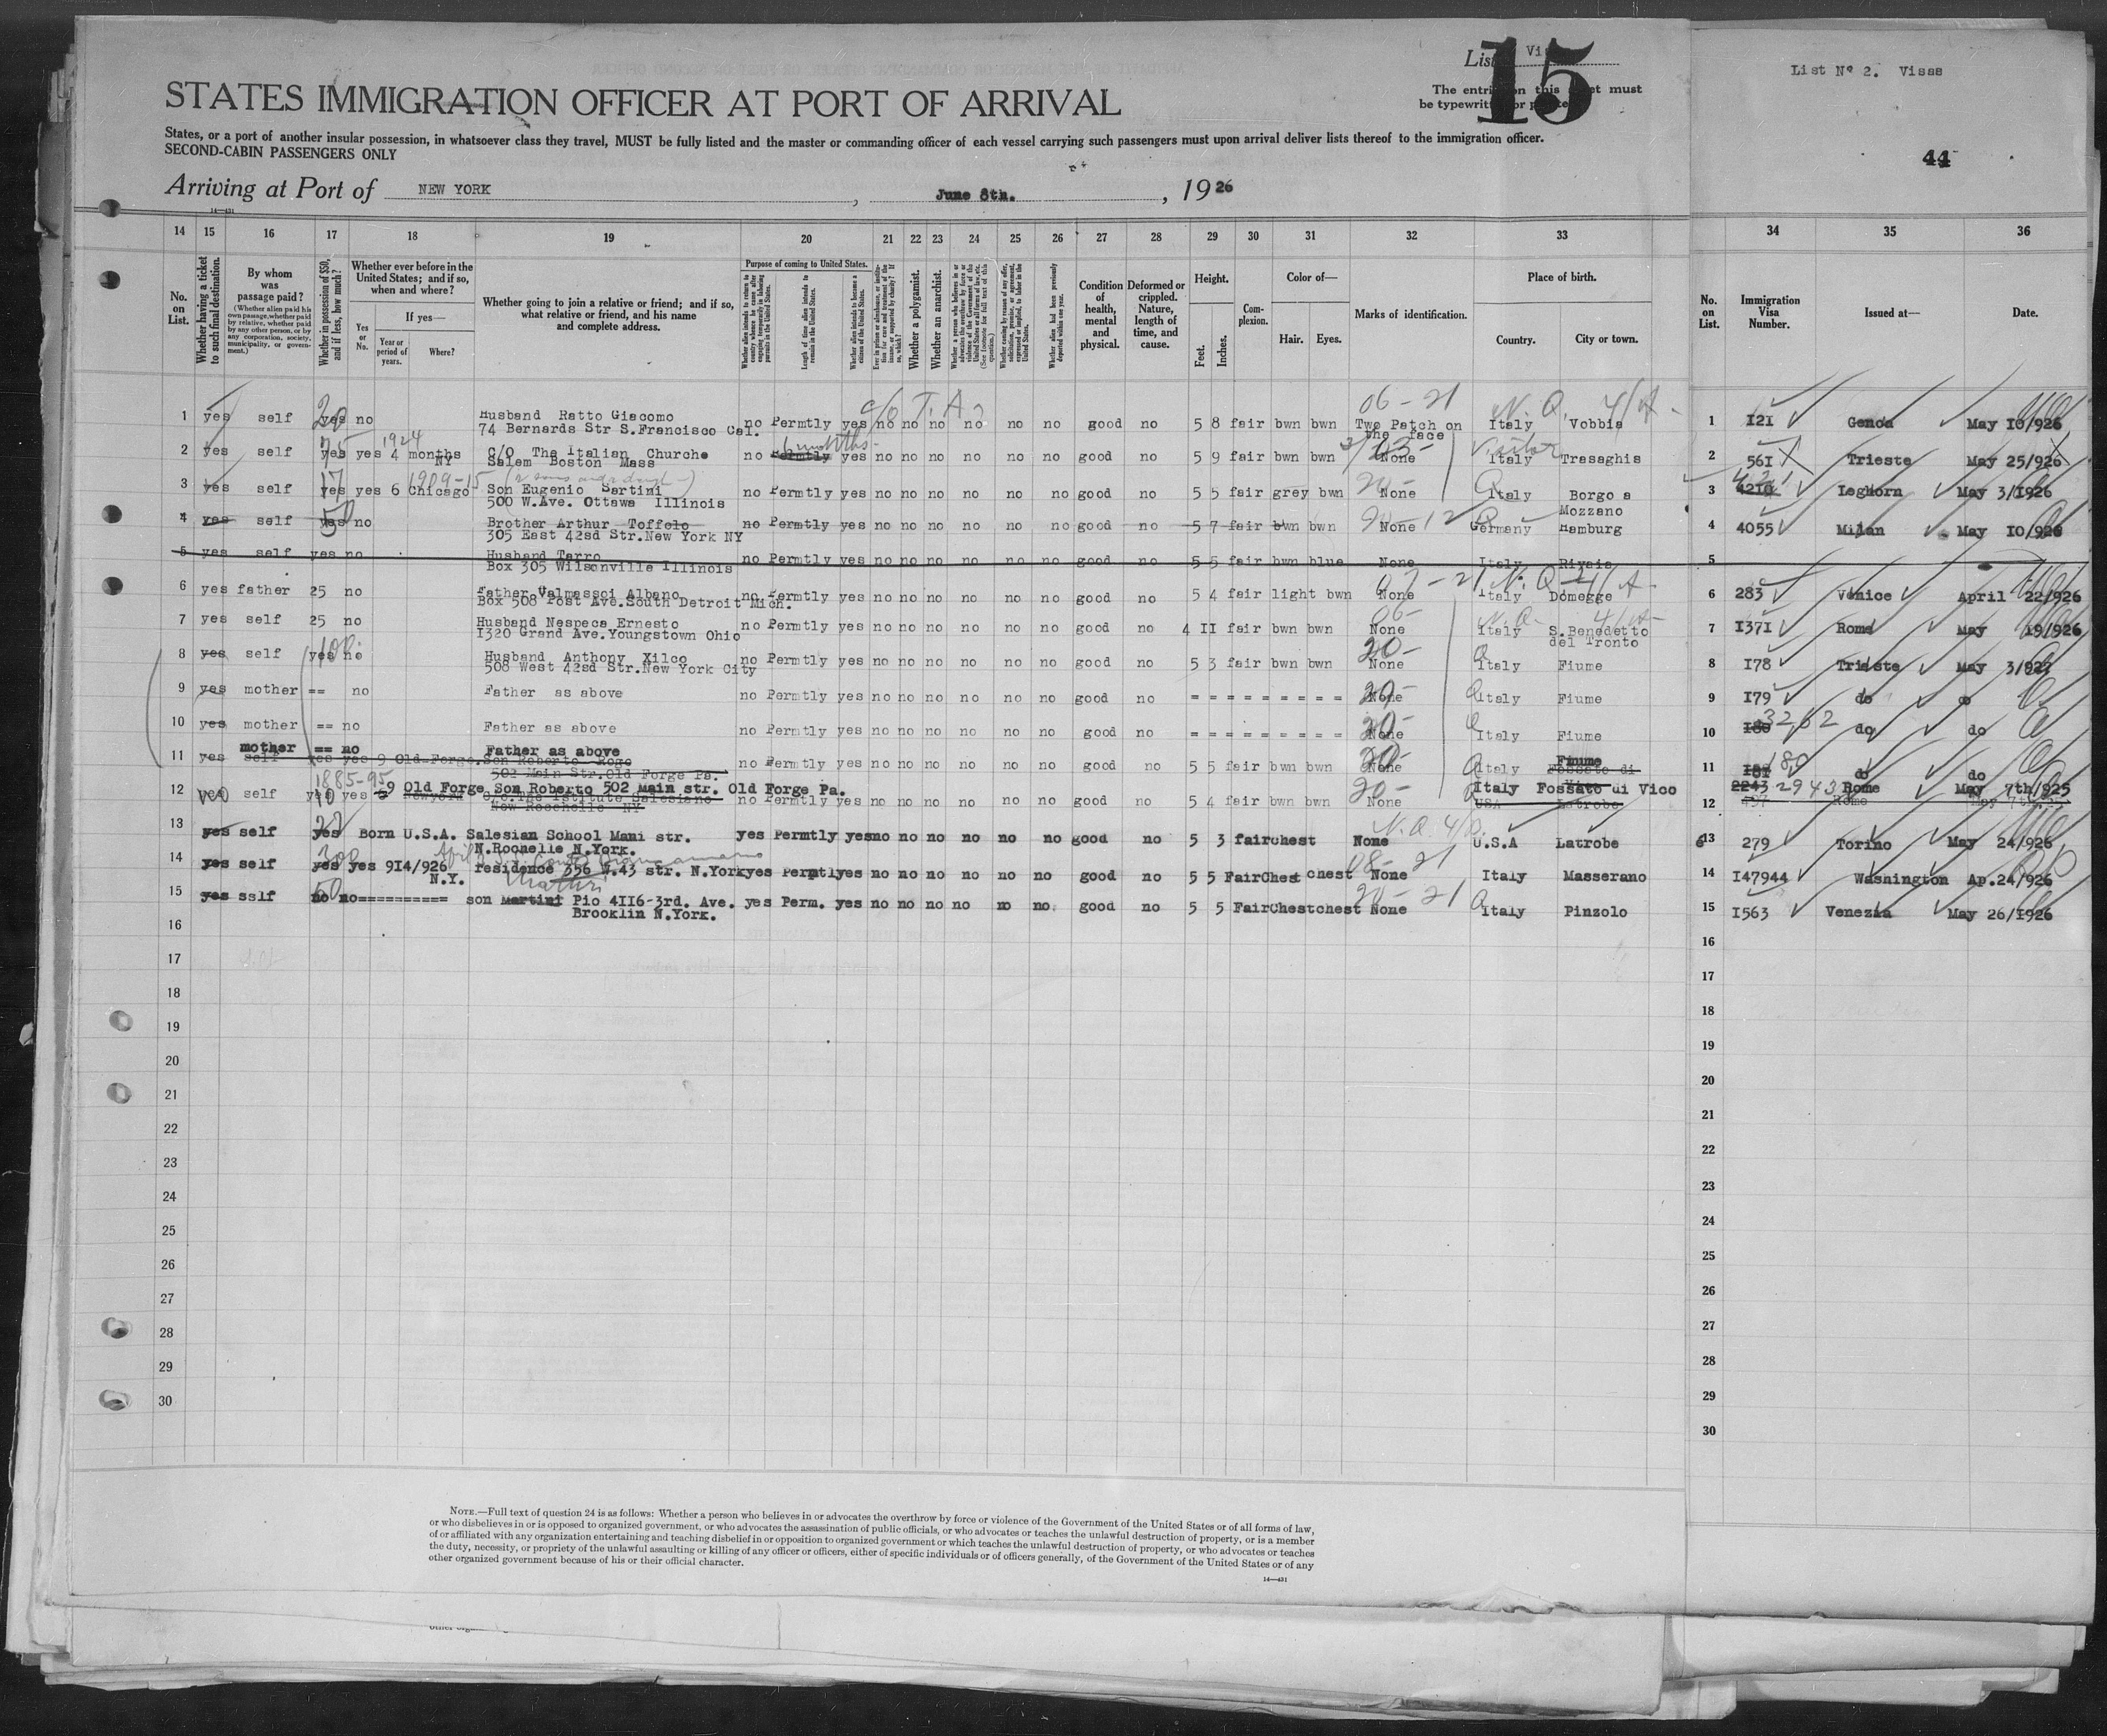 List
15
The entries on this sheet must
be typewritten or printed.
List Nº 2. Visas
44
STATES IMMIGRATION OFFICER AT PORT OF ARRIVAL
States, or a port of another insular possession, in whatsoever class they travel, MUST be fully listed and the master or commanding officer of each vessel carrying such passengers must upon arrival deliver lists thereof to the immigration officer.
SECOND-CABIN PASSENGERS ONLY
Arriving at Port of NEW YORK , June 8th. , 1926
14 15 16 17 18 19 20 21 22 23 24 25 26 27 28 29 30 31 32 33 34 35 36
No. on List.
Whether having a ticket to such final destination.
By whom was passage paid?
(Whether alien paid his own passage, whether paid by relative, whether paid by any other person, or by any corporation, society, municipality, or government.)
Whether in possession of $50, and if less, how much?
Whether ever before in the United States; and if so, when and where?
Yes or No.
If yes—
Year or period of years.
Where?
Whether going to join a relative or friend; and if so, what relative or friend, and his name and complete address.
Purpose of coming to United States.
Length of time alien intends to remain in the United States.
Whether alien intends to become a citizen of the United States.
Whether a polygamist.
Whether an anarchist.
Condition of health, mental and physical.
Deformed or crippled. Nature, length of time, and cause.
Height.
Feet. Inches.
Complexion.
Color of—
Hair. Eyes.
Marks of identification.
Place of birth.
Country. City or town.
No. on List.
Immigration Visa Number.
Issued at—
Date.
1 yes self yes 20 no Husband Ratto Giacomo no Permtly yes no no no no no no good no 5 8 fair bwn bwn Two Patch on Italy Vobbia 1 I2I Genoa May I0/926
74 Bernards Str S.Francisco Cal. the face
06-21 N.Q. 4/A
2 yes self yes 75 yes 4 months C/O The Italian Churche no Permtly yes no no no no no no good no 5 9 fair bwn bwn None Italy Trasaghis 2 56I Trieste May 25/926
1924 NY Salem Boston Mass 6 months Visitor
3 yes self yes 17 yes 6 Chicago Son Eugenio Sartini no Permtly yes no no no no no no good no 5 5 fair grey bwn None Italy Borgo a 3 42I0 Leghorn May 3/I926
1909-15 500 W.Ave. Ottawa Illinois 20- Mozzano
4 yes self yes 50 no Brother Arthur Toffolo no Permtly yes no no no no no no good no 5 7 fair bwn bwn None Germany Hamburg 4 4055 Milan May I0/926
305 East 42sd Str.New York NY
5 yes self yes no Husband Tarro no Permtly yes no no no no no no good no 5 5 fair bwn blue None Italy 5
Box 305 Wilsonville Illinois
6 yes father 25 no Father Valmassoi Albano no Permtly yes no no no no no no good no 5 4 fair light bwn None Italy Domegge 6 283 Venice April 22/926
Box 508 Post Ave.South Detroit Mich.
7 yes self 25 no Husband Nespeca Ernesto no Permtly yes no no no no no no good no 4 II fair bwn bwn None Italy S.Benedetto 7 I37I Rome May I9/926
I320 Grand Ave.Youngstown Ohio 06- del Tronto
8 yes self yes 100 no Husband Anthony Xilco no Permtly yes no no no no no no good no 5 3 fair bwn bwn None Italy Fiume 8 I78 Trieste May 3/927
508 West 42sd Str.New York City 20-
9 yes mother == no Father as above no Permtly yes no no no no no no good no = = = = = = = = = None Italy Fiume 9 I79 do
20-
10 yes mother == no Father as above no Permtly yes no no no no no no good no = = = = = = = = = None Italy Fiume 10 I80 3262 do do
20-
mother == no Father as above Fiume
11 yes self yes yes 9 Old Forge. Son Roberto Rogo no Permtly yes no no no no no no good no 5 5 fair bwn bwn None Italy Fossato di 11 I8I 180 do do
502 Main Str.Old Forge Pa. 20-
1885-95 9 Old Forge Son Roberto 502 Main str. Old Forge Pa. Italy Fossato ui Vico 2243 2943 Rome May 7th/925
12 yes self yes 10 yes New York C/o. The Istitute Salesiano no Permtly yes no no no no no no good no 5 4 fair bwn bwn None USA Latrobe 12 Rome May 7th
New Roschelle NY 20-
13 yes self yes Born U.S.A. Salesian School Mani str. yes Permtly yes no no no no no no good no 5 3 fair chest None U.S.A Latrobe 13 279 Torino May 24/926
N.Rochelle N.York. N.Q.
14 yes self yes 300 yes 9I4/926 residence 356 W.43 str. N.York yes Permtlyes no no no no no no good no 5 5 Fair Chest chest None Italy Masserano 14 I47944 Washington Ap.24/926
N.Y. 08-21
15 yes sslf no 50 no========= son Martini Pio 4II6-3rd. Ave. yes Perm. yes no no no no no no good no 5 5 Fair Chest chest None Italy Pinzolo 15 I563 Venezia May 26/I926
Brooklin N.York. 20-21
16 16
17 17
18 18
19 19
20 20
21 21
22 22
23 23
24 24
25 25
26 26
27 27
28 28
29 29
30 30
NOTE.—Full text of question 24 is as follows: Whether a person who believes in or advocates the overthrow by force or violence of the Government of the United States or of all forms of law,
or who disbelieves in or is opposed to organized government, or who advocates the assassination of public officials, or who advocates or teaches the unlawful destruction of property, or is a member
of or affiliated with any organization entertaining and teaching disbelief in or opposition to organized government or which teaches the unlawful destruction of property, or who advocates or teaches
the duty, necessity, or propriety of the unlawful assaulting or killing of any officer or officers, either of specific individuals or of officers generally, of the Government of the United States or of any
other organized government because of his or their official character.
14—431